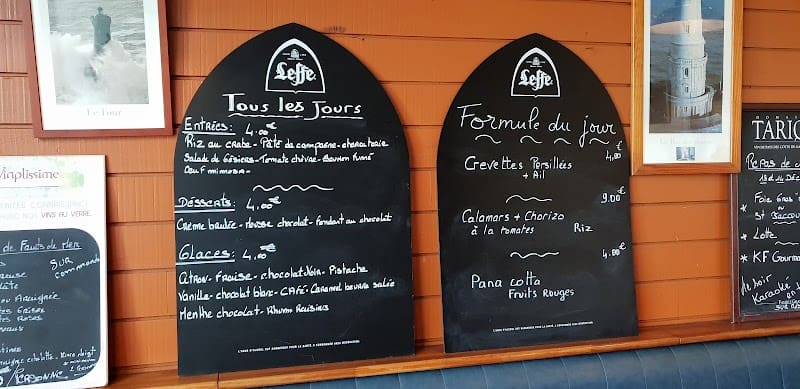 Le Four
Vinplissime
NOS VINS AU VERRE.
de Fruits de Mer
SUR
commande
PERSONNE
Leffe
Tous les Jours
Entrées: 4.00€
Riz au crabe - Pâté de campagne - charcuterie
Salade de Gésiers - Tomate chèvre - Saumon fumé
Oeuf mimosa -
Désserts: 4.00€
Crème brulée - Mousse chocolat - Fondant au chocolat
Glaces: 4.00€
Citron - Fraise - chocolat Noir - Pistache
Vanille - chocolat blanc - CAFÉ - Caramel beurre salée
Menthe chocolat - Rhum Raisins
L'ABUS D'ALCOOL EST DANGEREUX POUR LA SANTÉ, À CONSOMMER AVEC MODÉRATION.
Leffe
Formule du jour
4.00€
Crevettes Persillées
+ Ail
9.00€
Calamars + Chorizo
à la tomates Riz
4.00€
Pana cotta
Fruits Rouges
L'ABUS D'ALCOOL EST DANGEREUX POUR LA SANTÉ, À CONSOMMER AVEC MODÉRATION.
TARIQ
Repas de
* Foie Gras
ou
St Jacques
* Lotte
* KF Gourma
Karaoké